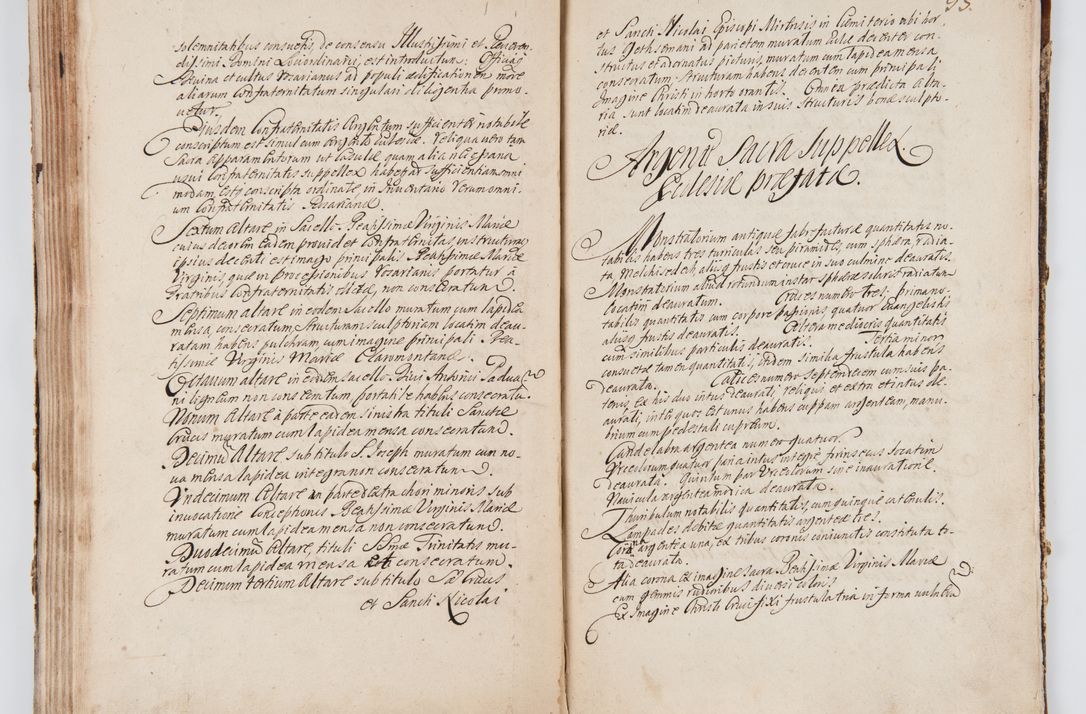 solemnitatibus consuetis, de consensu Illustrissimi et Reveren-
dissimi Domini Loci ordinarii, est introducta: Officia
Divina et cultus Rosarianus ad populi aedificationem more
aliarum Confraternitatum singulari diligentia promo-
vetur.
Ejusdem Confraternitatis Argentum sufficienter notabile
conscriptum est simul cum argento Ecclesiae. Reliqua vero tam
Sacra apparamentorum ut Casulae quam alia
usui Confraternitatis suppellex habetur sufficientia omni
modam, esto conscripta ordinate in Inventario Rerum omni-
um Confraternitatis Rosarianae.
Sextum Altare in Sacello Beatissimae Virginis Mariae
cuius decorem eadem providet Confraternitas, in structura
ipsius decenti est imago principalis Beatissimae Mariae
Virginis, quae in processionibus Rosarianis portatur à
Fratribus Confraternitatis dictae, non consecratum.
Septimum altare in eodem Sacello muratum cum lapidea
mensa, consecratum, structuram sculptoriam locatim deau-
ratam habens pulchram, cum imagine principali Bea-
tissimae Virginis Mariae Claromontanae.
Octavum altare in eodem Sacello Divi Antonii Padua-
ni ligneum non consecratum portatile habens consecratum.
Nonum Altare à parte earem sinistra tituli Sanctae
Crucis muratum cum lapidea mensa consecratum.
Decimum Altare sub titulo S. Joseph muratum cum no-
va mensa lapidea integra non consecratum.
Undecimum Altare in parte dextra chori minoris sub
invocatione Conceptionis Beatissimae Virginis Mariae
muratum cum lapidea mensa non consecratum.
Duodecimum Altare, tituli SSmae Trinitatis mu-
ratum cum lapidea mensa et consecratum.
Decimum tertium Altare sub titulo
et Sancti Nicolai
93.
et Sancti Nicolai Episcopi Mirensis in Caemiterio ubi hor-
tus Gethsemani ad parietem muratum Ecclesiae decenter con-
structus et adornatus picturis, muratum cum lapidea mensa
consecratum. Structuram habens decentem cum principali
Imagine Christi in horto orantis. Omnia praedicta alta-
ria sunt locatim deaurata in suis structuris bonae sculpto-
riae.
Argenti Sacra Suppellex
Ecclesiae praefatae.
Monstratorium antiquae fabrefacturae quantitatis no-
tabilis habens tres turriculas seu piramides, cum sphera, radia-
ta Melchisedech aliis frustis et cruce in suo culmine deauratis.
Monstratorium aliud rotundum instar sphaerae solaris radiatum
locatim deauratum. Cruces numero tres: prima no-
tabilis quantitatis cum corpore passionis, quatuor Evangelistis
aliisq frustis deauratis. Altera mediocris quantitatis
cum similibus particulis deauratis. Tertia minor
consuetae tamen quantitatis, eadem similia frustula habens
deaurata. Calices numero Septemdecem cum suis pa-
tenis, ex his duo intus deaurati, reliqui et extra et intus de-
aurati, inter quos est unus habens cuppam argenteam, manu-
brium cum pedestali cupreum.
Candelabra argentea numero quatuor.
Urceolorum quatuor paria intus integre forinsecus locatim
deaurata. Quintum par Urceolorum sine inauratione.
Navicula argentea modica deaurata.
Thuribulum notabilis quantitatis, cum quinque catenulis.
Lampades debitae quantitatis argenteae tres.
Corona argentea una, ex tribus coronis coniunctis constituta to-
ta deaurata.
Alia corona ex imagine Sacra Beatissimae Virginis Mariae
cum gemmis rudioribus diversi coloris.
Ex Imagine Christi Crucifixi frustula tria in forma vulnerum